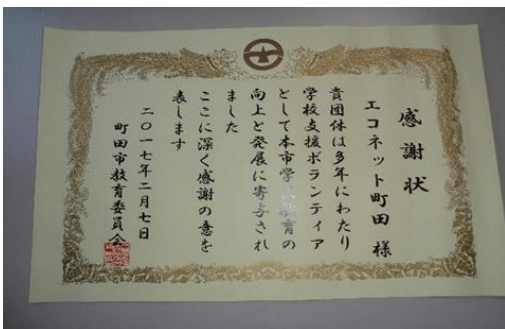 感謝状
エコネット町田 様
貴団体は多年にわたり
学校支援ボランティア
として本市学校教育の
向上と発展に寄与され
ました
ここに深く感謝の意を
表します
二〇一七年二月七日
町田市教育委員会